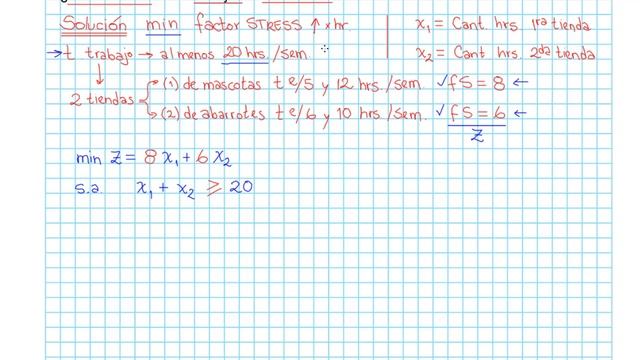 Solución min factor STRESS ↑ x hr.
x₁ = Cant. hrs. 1ra tienda
→ t trabajo → al menos 20 hrs./sem.
x₂ = Cant hrs. 2da tienda
2 tiendas
(1) de mascotas t e/5 y 12 hrs./sem. ✓ fS = 8 ←
(2) de abarrotes t e/6 y 10 hrs./sem. ✓ fS = 6 ←
Z
min Z = 8x₁ + 6x₂
s.a. x₁ + x₂ ≥ 20